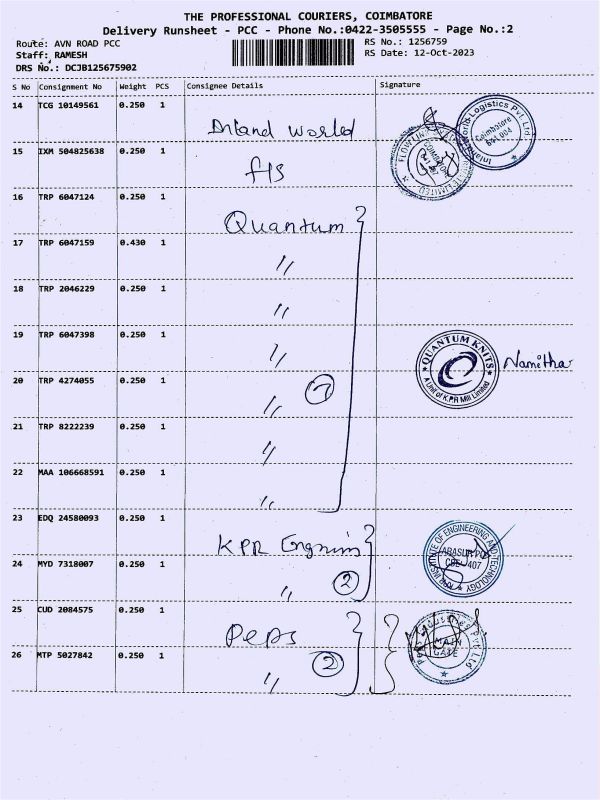 THE PROFESSIONAL COURIERS, COIMBATORE
Delivery Runsheet - PCC - Phone No.:0422-3505555 - Page No.:2
Route: AVN ROAD PCC RS No.: 1256759
Staff: RAMESH RS Date: 12-Oct-2023
DRS No.: DCJB125675902
S No Consignment No Weight PCS Consignee Details Signature
14 TCG 10149561 0.250 1
Inland World
Coimbatore
15 IXM 504825638 0.250 1
fls
16 TRP 6047124 0.250 1
Quantum
17 TRP 6047159 0.430 1
"
18 TRP 2046229 0.250 1
"
19 TRP 6047398 0.250 1
" QUANTUM KNITS Namitha
A Unit of K.P.R Mill Limited
20 TRP 4274055 0.250 1
" 7
21 TRP 8222239 0.250 1
"
22 MAA 106668591 0.250 1
"
23 EDQ 24580093 0.250 1
KPR INSTITUTE OF ENGINEERING AND TECHNOLOGY
24 MYD 7318007 0.250 1
" 2
25 CUD 2084575 0.250 1
Peps
MAIN GATE
26 MTP 5027842 0.250 1
" 2